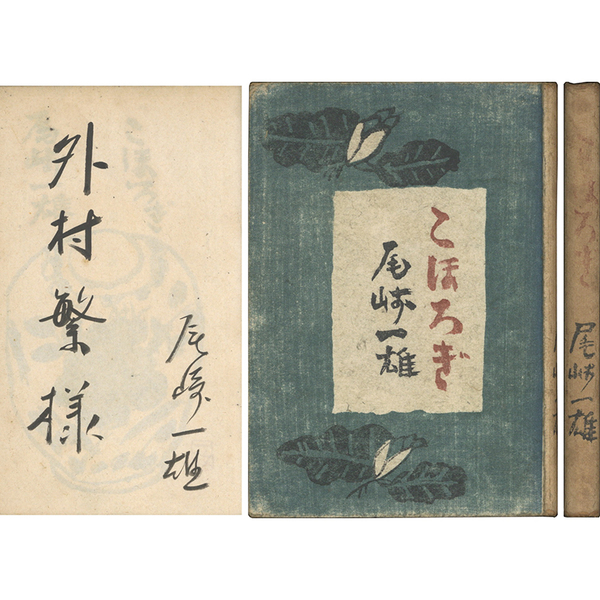 外村繁様
尾崎一雄
こほろぎ
尾崎一雄
ろぎ
尾崎一雄